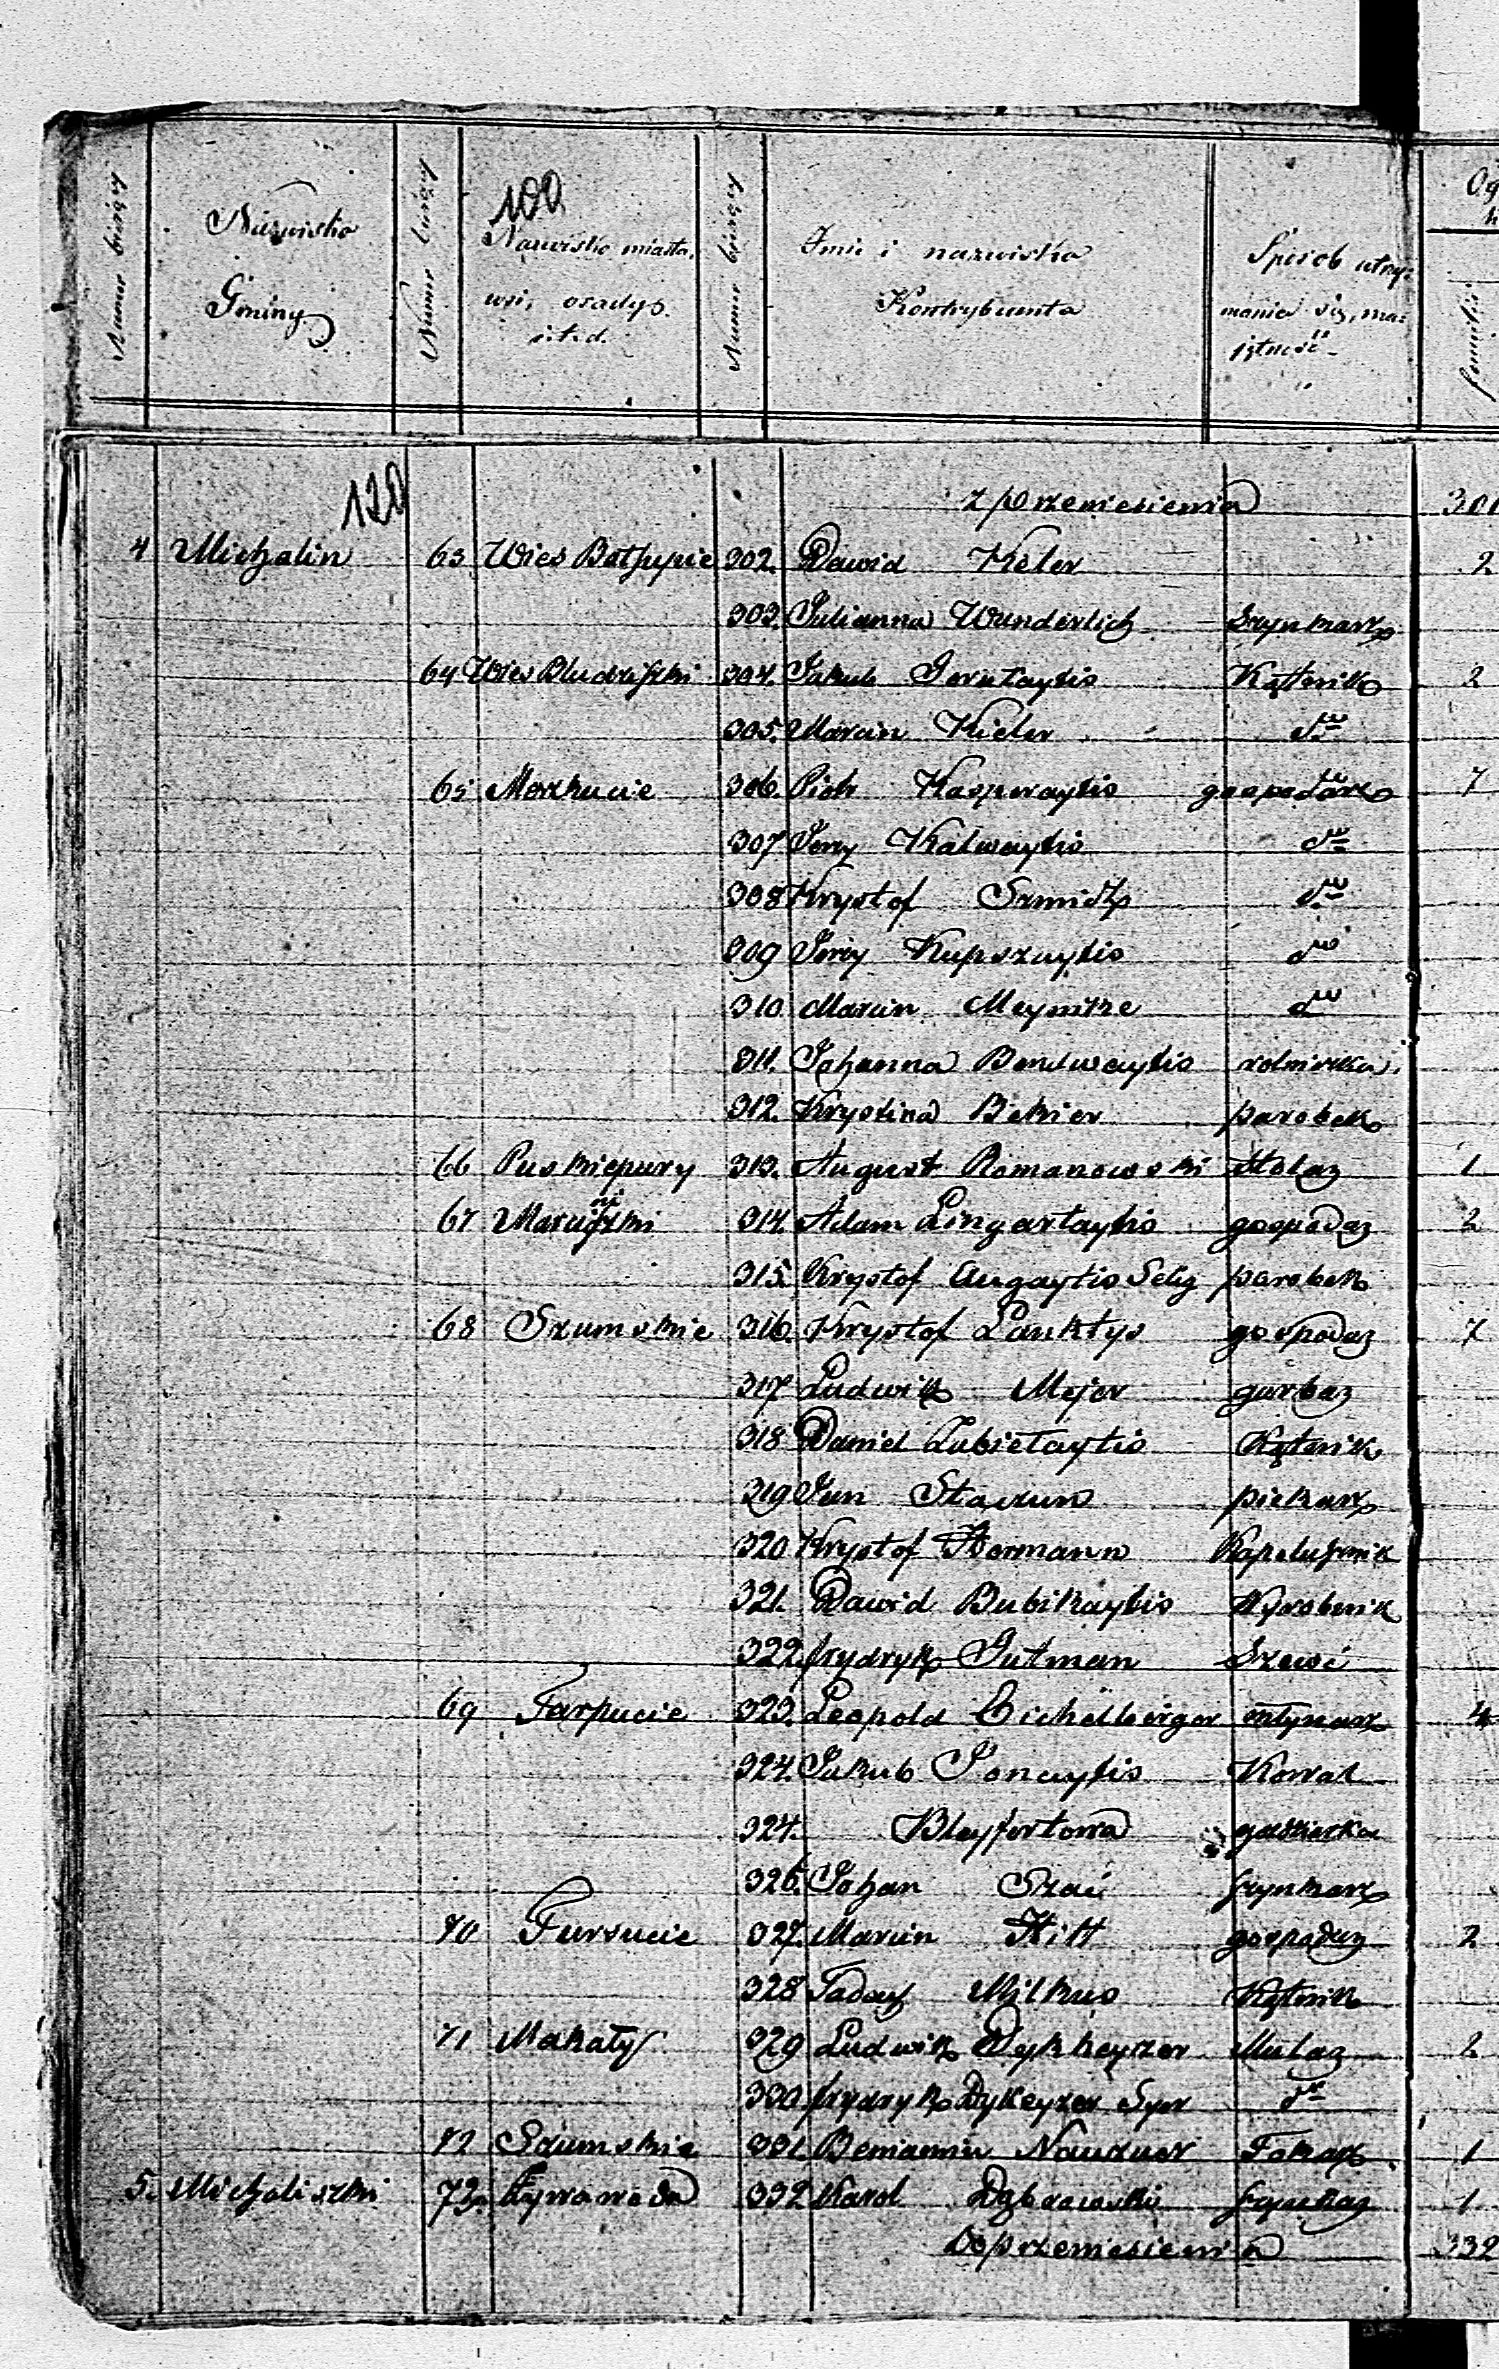 Numer bieżący Nazwisko Gminy Numer bieżący 100 Nazwisko miasta, wsi, osady, i.t.d. Numer bieżący Imie i nazwisko Kontrybuenta Sposób utrzymania się, majętność
120 z przeniesienia 301
4 Michalin 63 Wies 302. Dawid Keler 2
303. Julianna Wunderlich Szynkarz
64 Wies Bludziszki 304. Jakub Kątnik 2
305. Marcin Kieler dto
65 Mozkucie 306. Piotr Kasperaytis gospodarz 7
307 Jerzy Kalwaytis dto
308 Krystof Szmidt dto
309 Jerzy Kupszaytis dto
310 Marcin Meynike dto
311. Johanna Bendwaytis rolniczka
312. Krystina Bekier parobek
66 Puskiepury 313. August Romanowski Stolaz 1
67 314. Adam Lingartaytis gospodaz 2
315. Krystof Augaytis parobek
68 Szumskie 316. Krystof Lauktys gospodaz 7
317 Ludwik Mejer garbaz
318 Daniel Lubietaytis Kątnik
319 Jan Staczun piekarz
320 Krystof Hermann Kapelusznik
321. Dawid Bubikaytis Wyrobnik
322. frydryk Gutman Szewc
69 Tarpucie 323. Leopold Eichelberger młynarz 4
324. Jakub Jonaytis Kowal
324. Bleyfertowa
326. Johan Szać szynkarz
70 Fursucie 327. Marcin Hitt gospodaz 2
328 Tadeuß Milkus Kątnik
71 Makały 329 Ludwik Dykkeyzer Mulaz 2
330 frydryk Dykeyzer Syn dto
72 Szumskie 331. Beniamin Nauzner Tokarz 1
5. Michaliszki 73. 332 Karol Dąbrowski szynkaz 1
Do przeniesienia 332